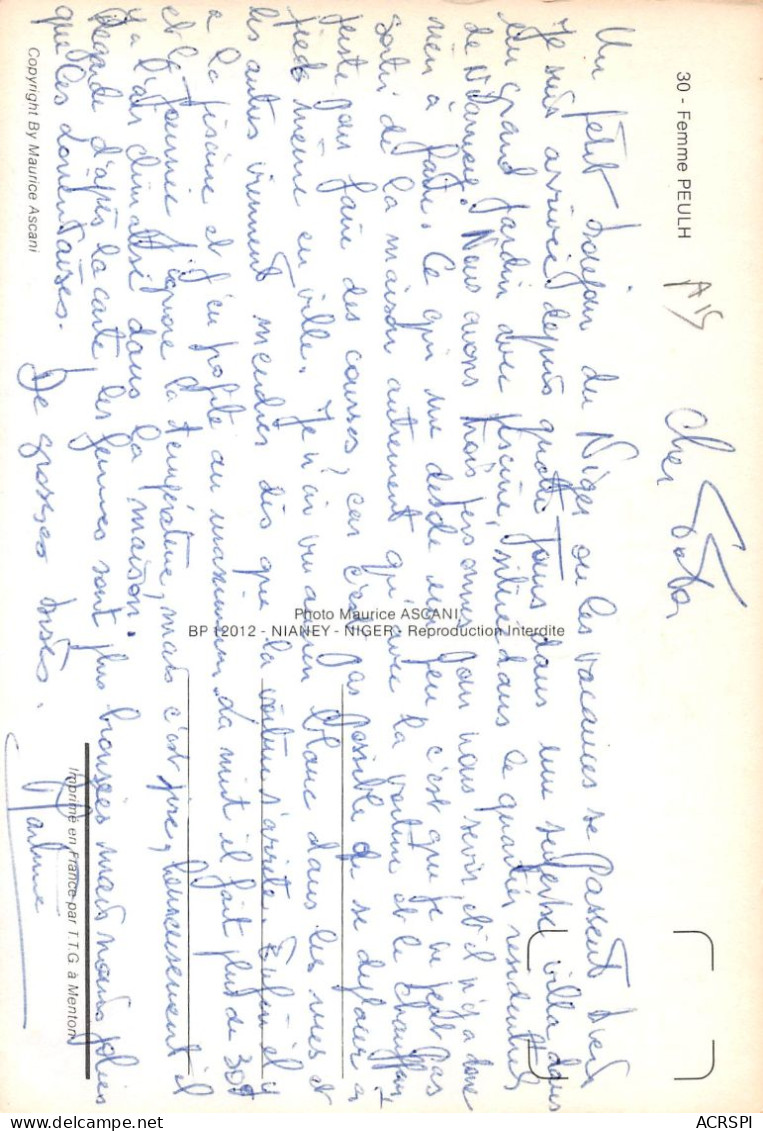 30 - Femme PEULH
A15
Cher
Un petit bonjour du Niger ou les vacances se passent bien
Je suis arrivée depuis quatre jours dans une superbe villa dans
un grand jardin avec piscine, située dans le quartier résidentiel
de Niamey. Nous avons trois personnes pour nous servir et il n'y a donc
rien à faire. Ce qui me désole un peu c'est que je ne peut pas
sortir de la maison autrement qu'avec la voiture et le chauffeur
juste pour faire des courses, car c'est pas possible de se déplacer à
pieds même en ville. Je n'ai vu aucun blanc dans les rues et
les autres viennent mendier dès que la voiture s'arrête. Enfin il y
a la piscine et j'en profite au maximum. La nuit il fait plus de 30°
et la journée j'ignore la température, mais c'est pire, heureusement il
y a l'air climatisé dans la maison.
Regarde d'après la carte les femmes sont plus bronzées mais moins jolies
que les lorientaises. De grosses bises.
Martine
Photo Maurice ASCANI,
BP 12012 - NIANEY - NIGER - Reproduction Interdite
Imprimé en France par T.T.G. à Menton
Copyright By Maurice Ascani
ACRSPI